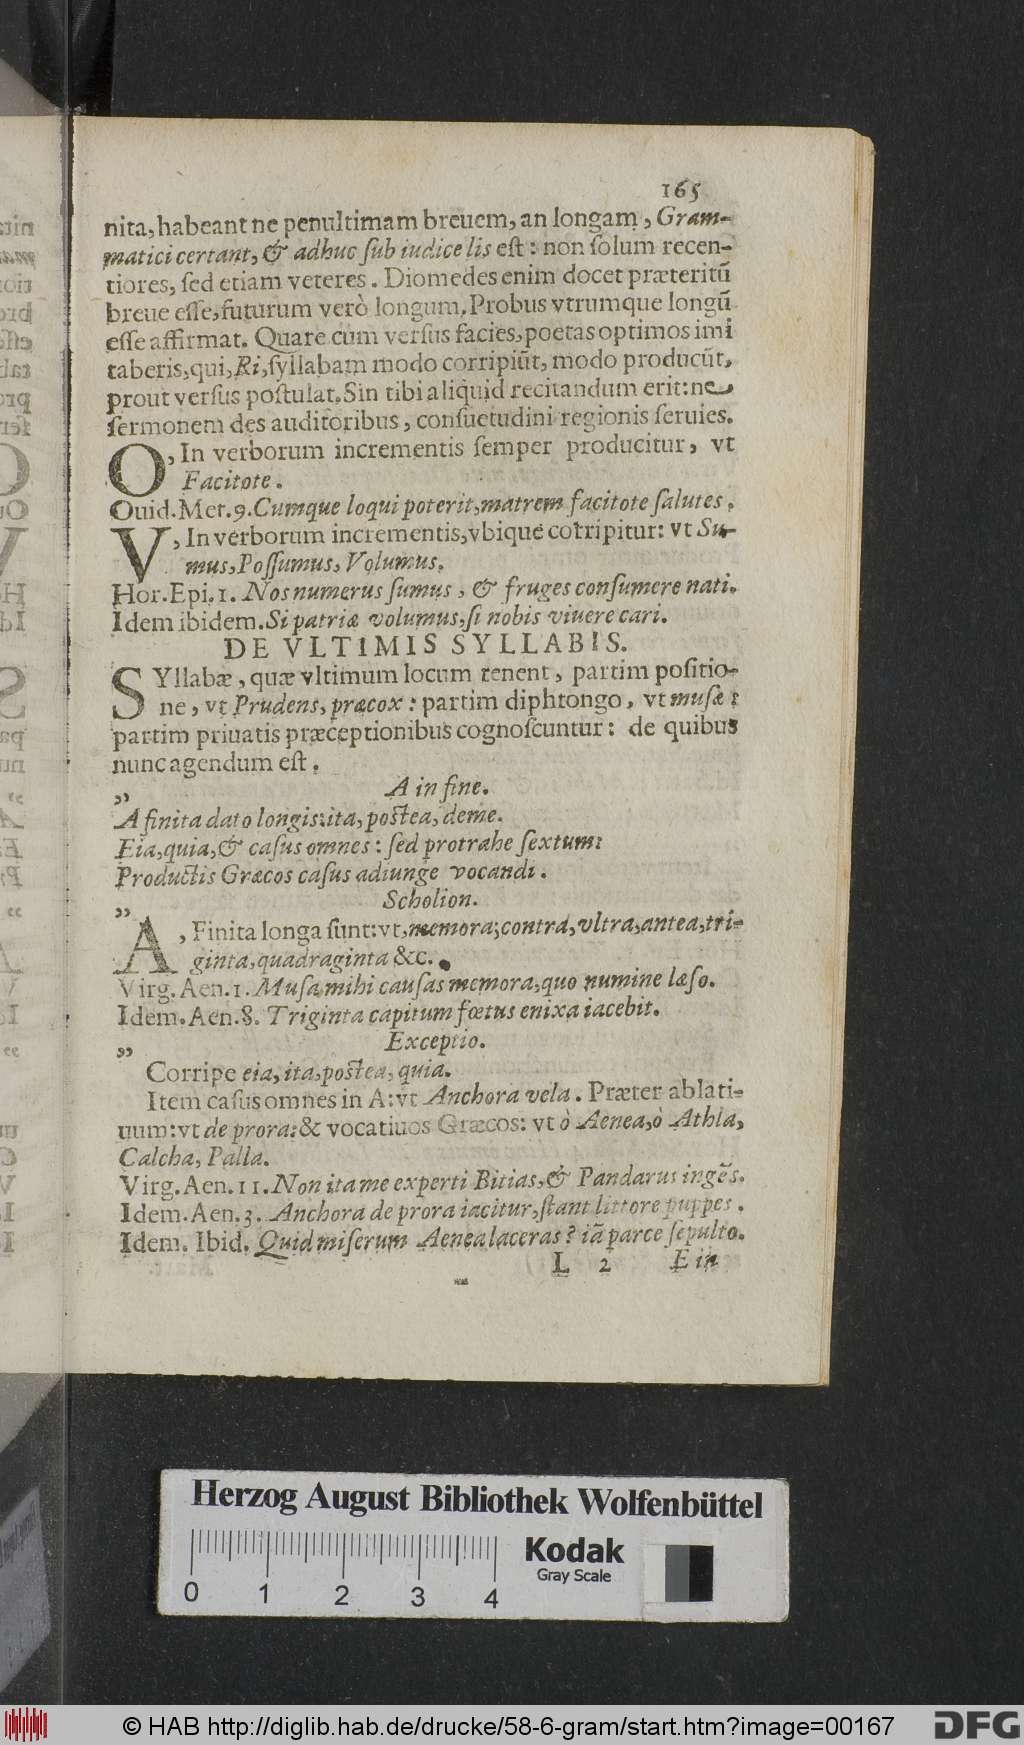 165
nita, habeant ne penultimam breuem, an longam, Gram-
matici certant, & adhuc ſub iudice lis eſt: non ſolum recen-
tiores, ſed etiam veteres. Diomedes enim docet præteritū
breue eſſe, futurum verò longum, Probus vtrumque longū
eſſe affirmat. Quare cùm verſus facies, poetas optimos imi
taberis, qui, Ri, ſyllabam modo corripiūt, modo producūt,
prout verſus poſtulat. Sin tibi aliquid recitandum erit: ne
ſermonem des auditoribus, conſuetudini regionis ſeruies.
O, In verborum incrementis ſemper producitur, vt
Facitote.
Ouid. Met. 9. Cumque loqui poterit, matrem facitote ſalutes.
V, In verborum incrementis, vbique corripitur: vt Su-
mus, Poſſumus, Volumus.
Hor. Epi. 1. Nos numerus ſumus, & fruges conſumere nati.
Idem ibidem. Si patriæ volumus, ſi nobis viuere cari.
DE VLTIMIS SYLLABIS.
SYllabæ, quæ vltimum locum tenent, partim poſitio-
ne, vt Prudens, præcox: partim diphtongo, vt muſæ:
partim priuatis præceptionibus cognoſcuntur: de quibus
nunc agendum eſt.
A in fine.
„
A finita dato longis: ita, poſtea, deme.
Eia, quia, & caſus omnes: ſed protrahe ſextum:
Productis Græcos caſus adiunge vocandi.
Scholion.
„
A, Finita longa ſunt: vt, memora; contra, vltra, antea, tri-
ginta, quadraginta &c.
Virg. Aen. 1. Muſa mihi cauſas memora, quo numine læſo.
Idem. Aen. 8. Triginta capitum fœtus enixa iacebit.
Exceptio.
„
Corripe eia, ita, poſtea, quia.
Item caſus omnes in A: vt Anchora vela. Præter ablati-
uum: vt de prora: & vocatiuos Græcos: vt ò Aenea, ò Athla,
Calcha, Palla.
Virg. Aen. 11. Non ita me experti Bitias, & Pandarus ingēs.
Idem. Aen. 3. Anchora de prora iacitur, ſtant littore puppes.
Idem. Ibid. Quid miſerum Aenea laceras? iā parce ſepulto.
L 2 E in
Herzog August Bibliothek Wolfenbüttel
Kodak
Gray Scale
0 1 2 3 4
© HAB http://diglib.hab.de/drucke/58-6-gram/start.htm?image=00167
DFG